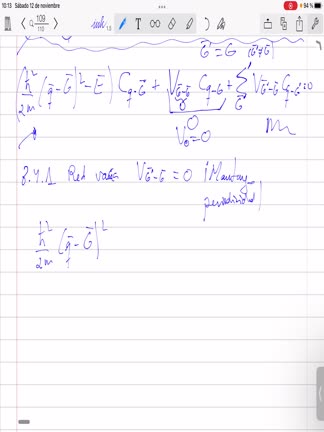 10:13 Sábado 12 de noviembre
94 %
109
110
1.5
G⃗' = G⃗ (G⃗'≠G⃗)
(ħ²/2m (q⃗-G⃗)² - E) C_{q⃗-G⃗} + V_{G⃗-G⃗} C_{q-G⃗} + Σ_{G⃗'} V_{G⃗'-G⃗} C_{q-G⃗'} = 0
0
V₀=0
3.4.1 Red vacía V_{G⃗'-G⃗} = 0 (Mantengo
periodicidad)
ħ²/2m (q⃗-G⃗)²